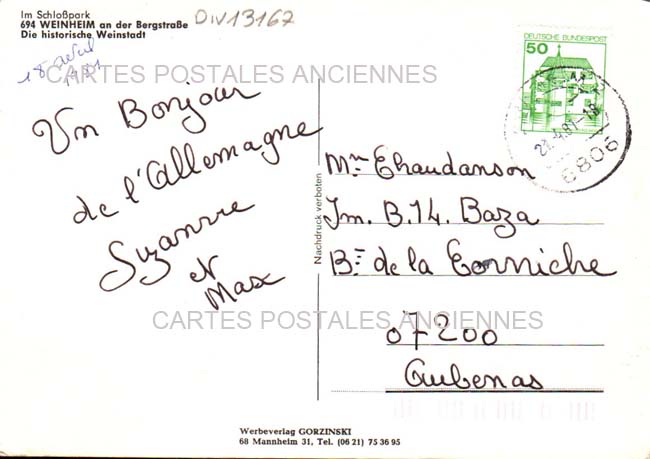 Im Schloßpark
694 WEINHEIM an der Bergstraße
Die historische Weinstadt
DIV13167
18 avril
1981
CARTES POSTALES ANCIENNES
Un Bonjour
de l'Allemagne
Suzanne
et
Max
DEUTSCHE BUNDESPOST
50
21.4.81-18
6806
Nachdruck verboten
Mme Chaudanson
Im. B.14. Baza
Bd de la Corniche
07200
Aubenas
CARTES POSTALES ANCIENNES
Werbeverlag GORZINSKI
68 Mannheim 31, Tel. (06 21) 75 36 95